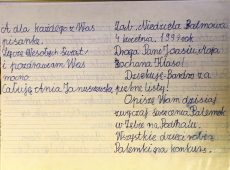 A dla każdego z Was
pisanka.
Życzę Wesołych Świąt
i pozdrawiam Was
mocno.
Całuję Ania Januszewska
Zab. Niedziela Palmowa
4 kwietnia,
Droga Pani Joasiu, Moja
Kochana Klaso!
Dziękuję Bardzo za
piękne listy!
Opiszę Wam dzisiaj
zwyczaj święcenia Palemek
w Zębie na Podhalu.
Wszystkie dzieci robią
Palemki na konkurs.